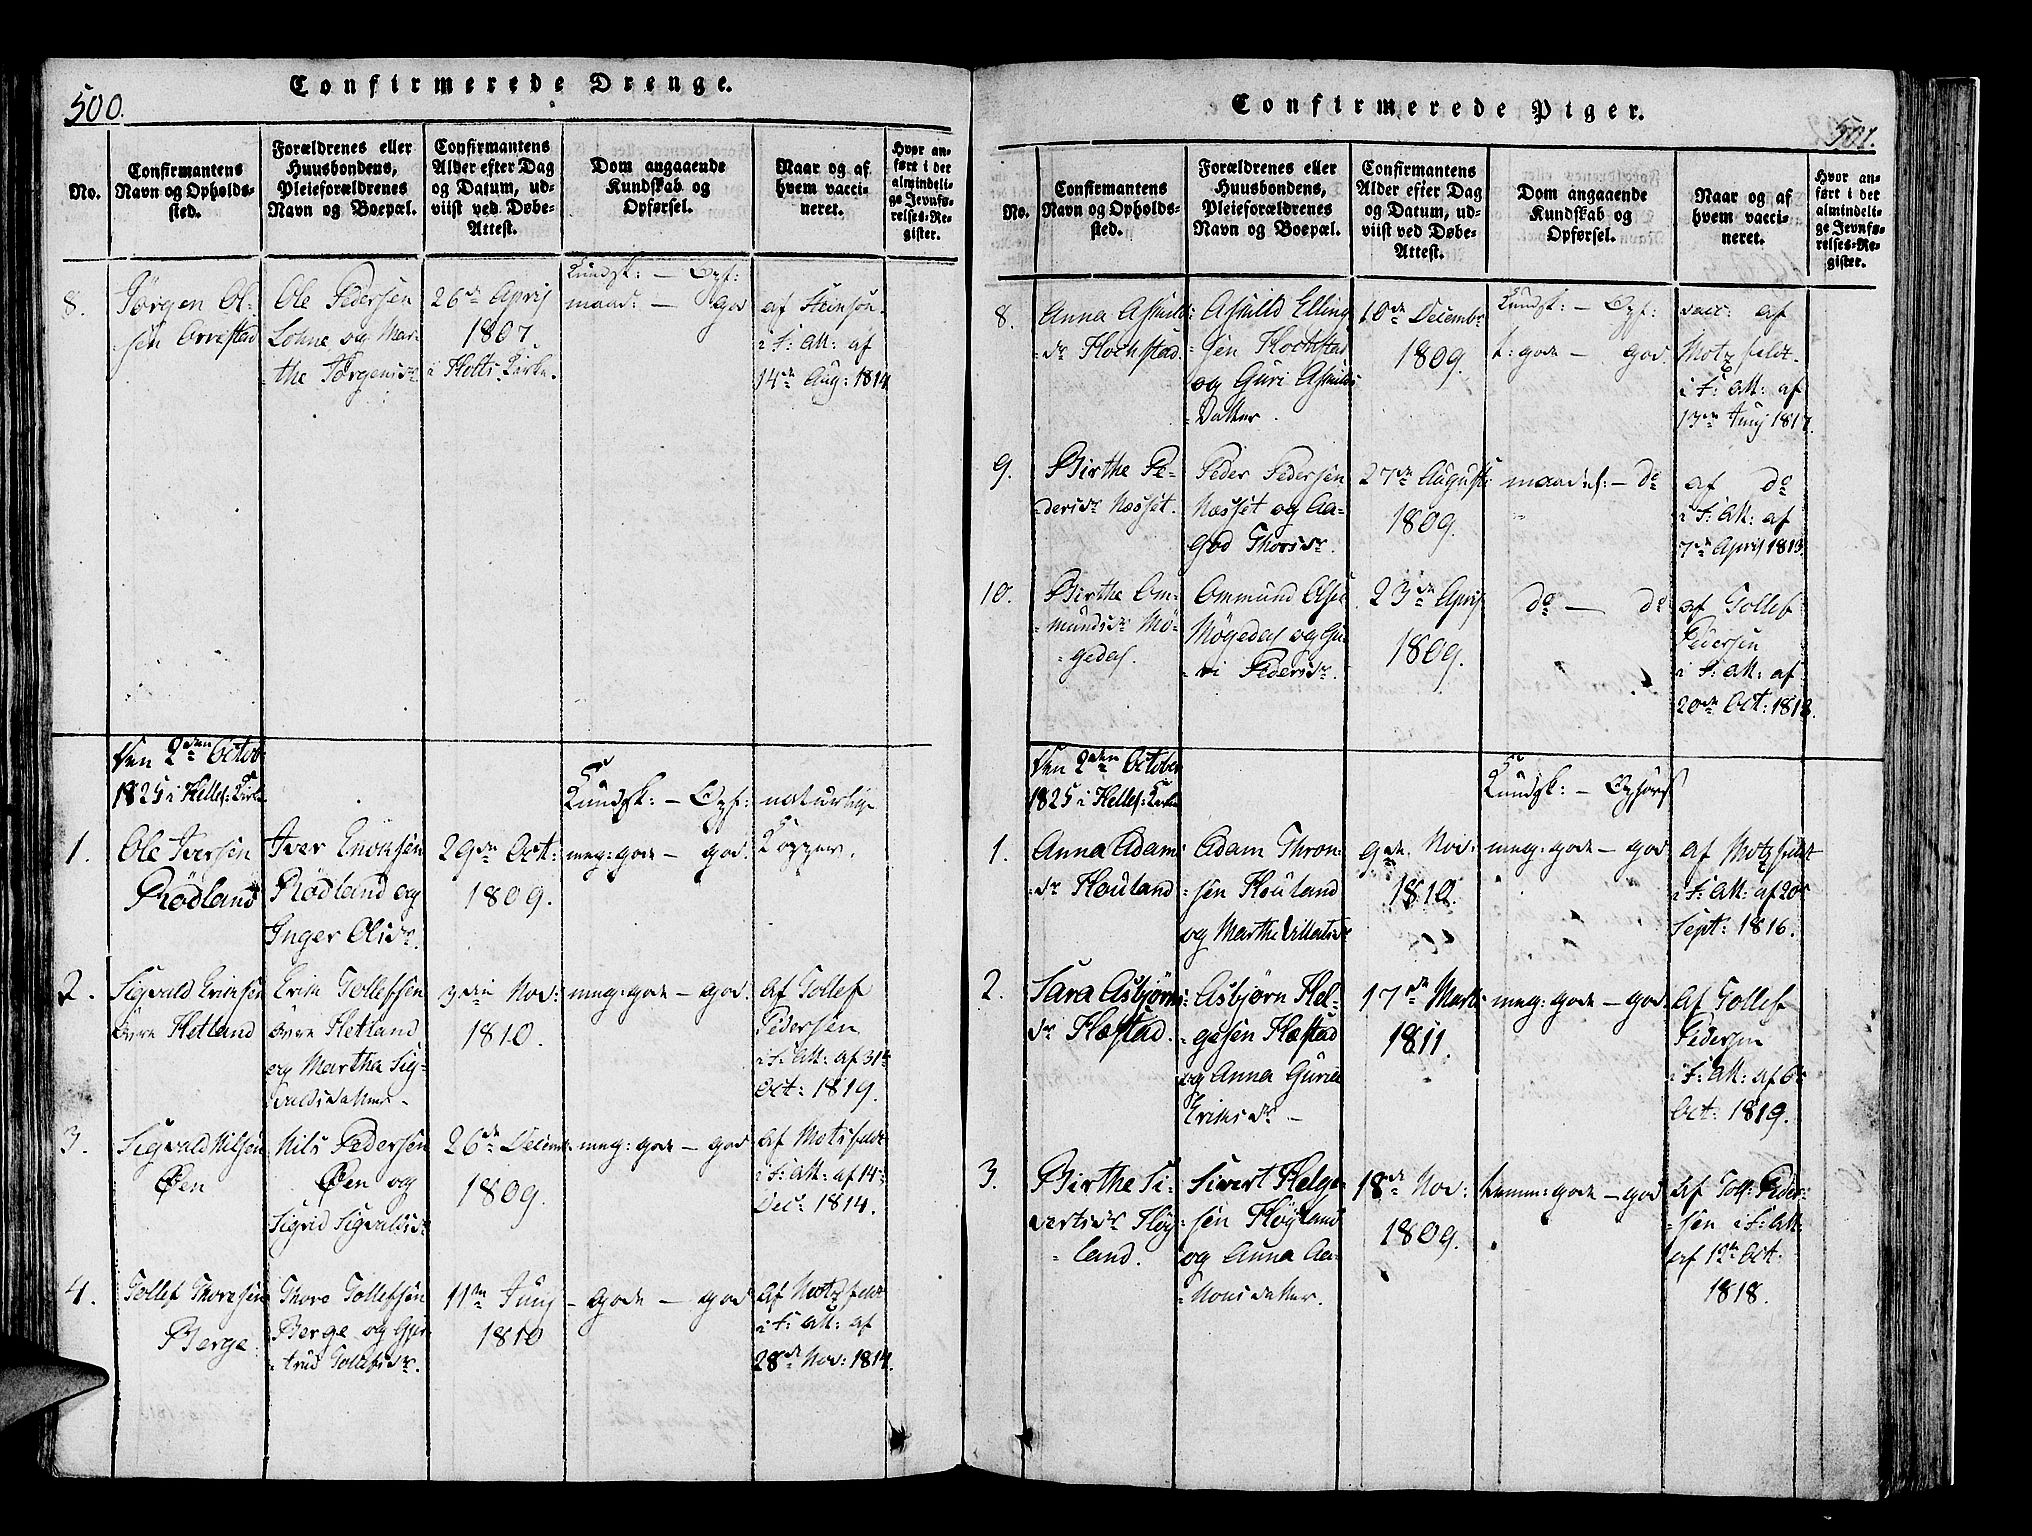 500.
Confirmerede Drenge.
No.
Confirmantens
Navn og Opholds-
sted.
Forældrenes eller
Huusbondens,
Pleieforældrenes
Navn og Boepæl.
Confirmantens
Alder efter Dag
og Datum, ud-
viist ved Døbe-
Attest.
Dom angaaende
Kundskab og
Opførsel.
Naar og af
hvem vacci-
neret.
Hvor an-
ført i det
almindeli-
ge Jevnfø-
relses-Re-
gister.
8.
Jørgen Ol-
sen Orrestad
Ole Pedersen
Lohne og Mar-
the Jørgensdr
26de April
1807.
i Helts Kirke.
Kundsk: — Opf:
maad: — god
af Steinson.
i F: Att: af
14de Aug: 1814
Den 2den Octob
1825 i Hellel: Kirke
Kundsk: — Opf:
1.
Ole Iversen
Rødland
Iver Enoksen
Rødland og
Inger Olisdr.
29de Oct:
1809.
meg: gode — god.
naturlige
Kopper.
2.
Sigvald Ericsen
øvre Hetland
Erik Tollefsen
øvre Hetland
og Martha Sig-
valdsdatter.
3die Nov:
1810.
meg: gode — god.
af Tollef
Pedersen
i F: Att: af 31te
Oct: 1819.
3.
Sigvald Nilsen
Øen
Nils Pedersen
Øen og
Sigrid Sigvaldsdr
26de Decem:
1809.
meg: gode — god
af Motsfeldt
i F: Att: af 14de
Dec: 1814.
4.
Tollef Thoresen
Berge
Thore Tollefsen
Berge og Gjer-
trud Tollefsdr.
11te Junj
1810
- gode — god
af Motzfeldt
i F: Att: af
28de Nov: 1814.
501.
Confirmerede Piger.
No.
Confirmantens
Navn og Opholds-
sted.
Forældrenes eller
Huusbondens,
Pleieforældrenes
Navn og Boepæl.
Confirmantens
Alder efter Dag
og Datum, ud-
viist ved Døbe-
Attest.
Dom angaaende
Kundskab og
Opførsel.
Naar og af
hvem vacci-
neret.
Hvor an-
ført i det
almindeli-
ge Jevnfø-
relses-Re-
gister.
8.
Anna Asmils:
dr Hochstad.
Asmild Elling-
sen Hochstad
og Guri Asmilds
Datter.
10de Decembr
1809.
Kundsk: — Opf:
t: gode — god
vacc: af
Motzfeldt.
i F: Att: af
13de Junj 1817.
9.
Birthe Pe-
dersdr Nesset.
Peder Pedersen
Nesset og Aa-
god Thorsdr.
27de August:
1809.
maadel: — do
af do
i F: Att: af
7de April 1813.
10.
Birthe Om-
mundsdr Mø-
gedal.
Ommund Olsen
Møgedal og Gu-
ri Pedersdr.
23de April
1809.
do — do
af Tollef
Pedersen
i F: Att: af
20de Oct: 1818.
Den 2den October
1825 i Hellel: Kirke
Kundsk: — Opførs
1.
Anna Adam:
dr Houland
Adam Thron-
sen Houland
og Marthe
9de Nov:
1810.
meg: gode — god
af Motzfeldt
i F: Att: af 20de
Sept: 1816.
2.
Sara Asbjørns:
dr Hæstad.
Asbjørn Hel-
gesen Hæstad
og Anna Gurie
Ericsdr.
17de Marts
1811.
meg: gode — god
af Tollef
Pedersen
i F: Att: af 6te
Oct: 1819.
3.
Birthe Si-
vertsdr Høy-
land.
Sivert Helge-
sen Høyland
og Anna Aa-
nonsdatter.
18de Nov:
1809.
temm: gode — god
af Toll: Peder-
sen i F: Att:
af 19de Oct:
1818.